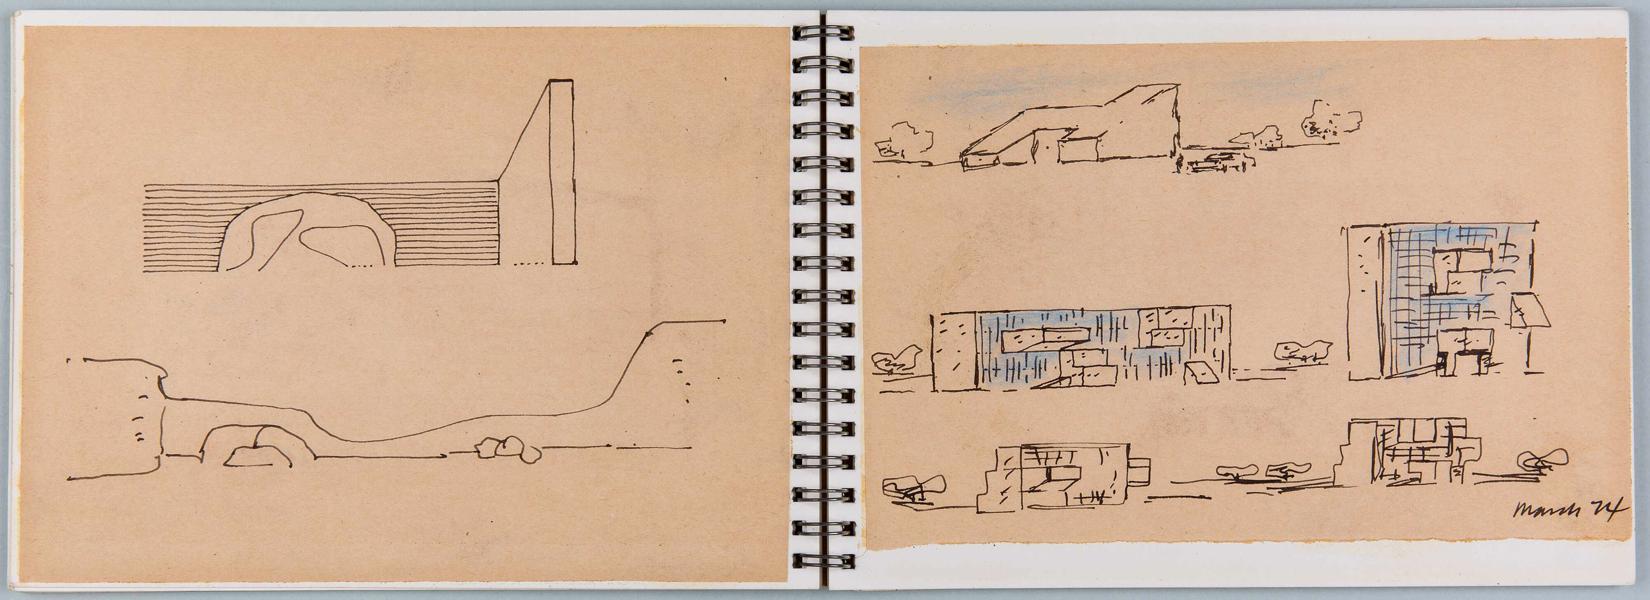 March 74